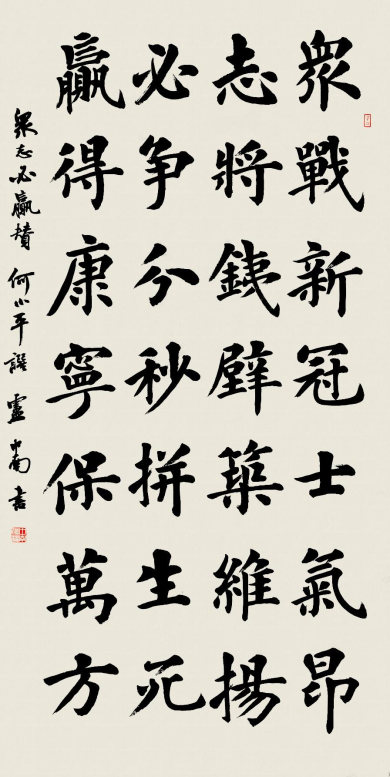 衆戰新冠士氣昂
志將銕壁築維揚
必争分秒拼生死
贏得康寧保萬方
衆志必贏贊 何小平譔 盧中南書